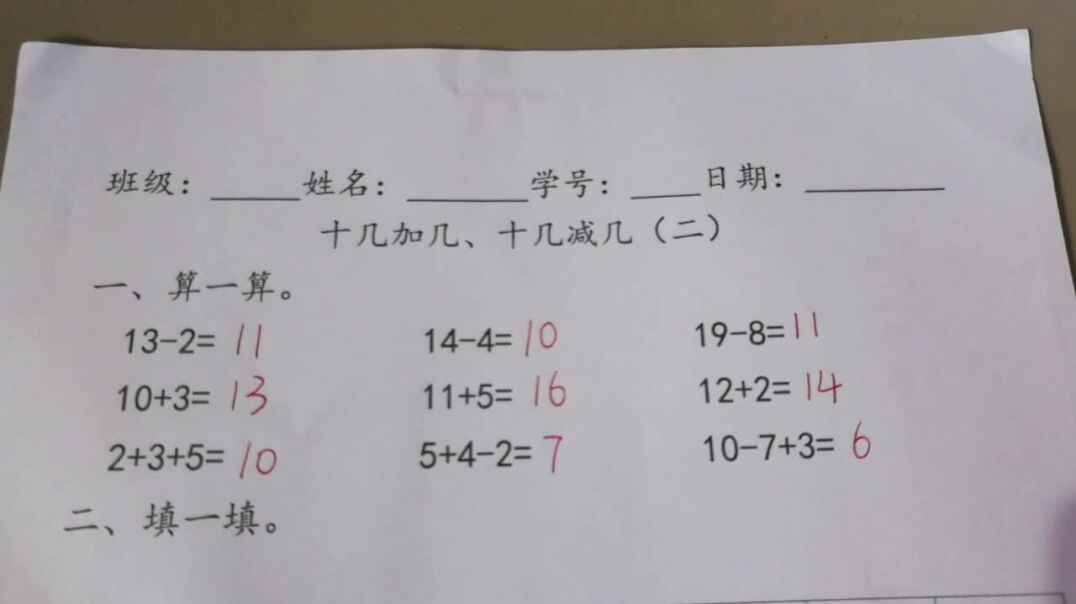 班级：_____姓名：_______学号：____日期：________
十几加几、十几减几（二）
一、算一算。
13-2= 11 14-4= 10 19-8= 11
10+3= 13 11+5= 16 12+2= 14
2+3+5= 10 5+4-2= 7 10-7+3= 6
二、填一填。